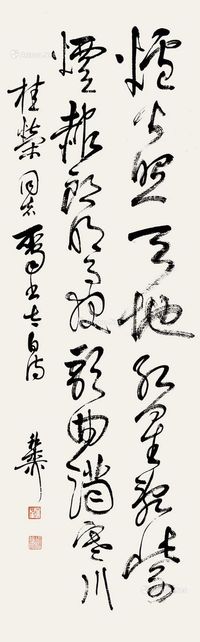 爐火照天地紅星亂紫
煙赧郎明月夜歌曲寒川
桂榮同志屬書太白詩